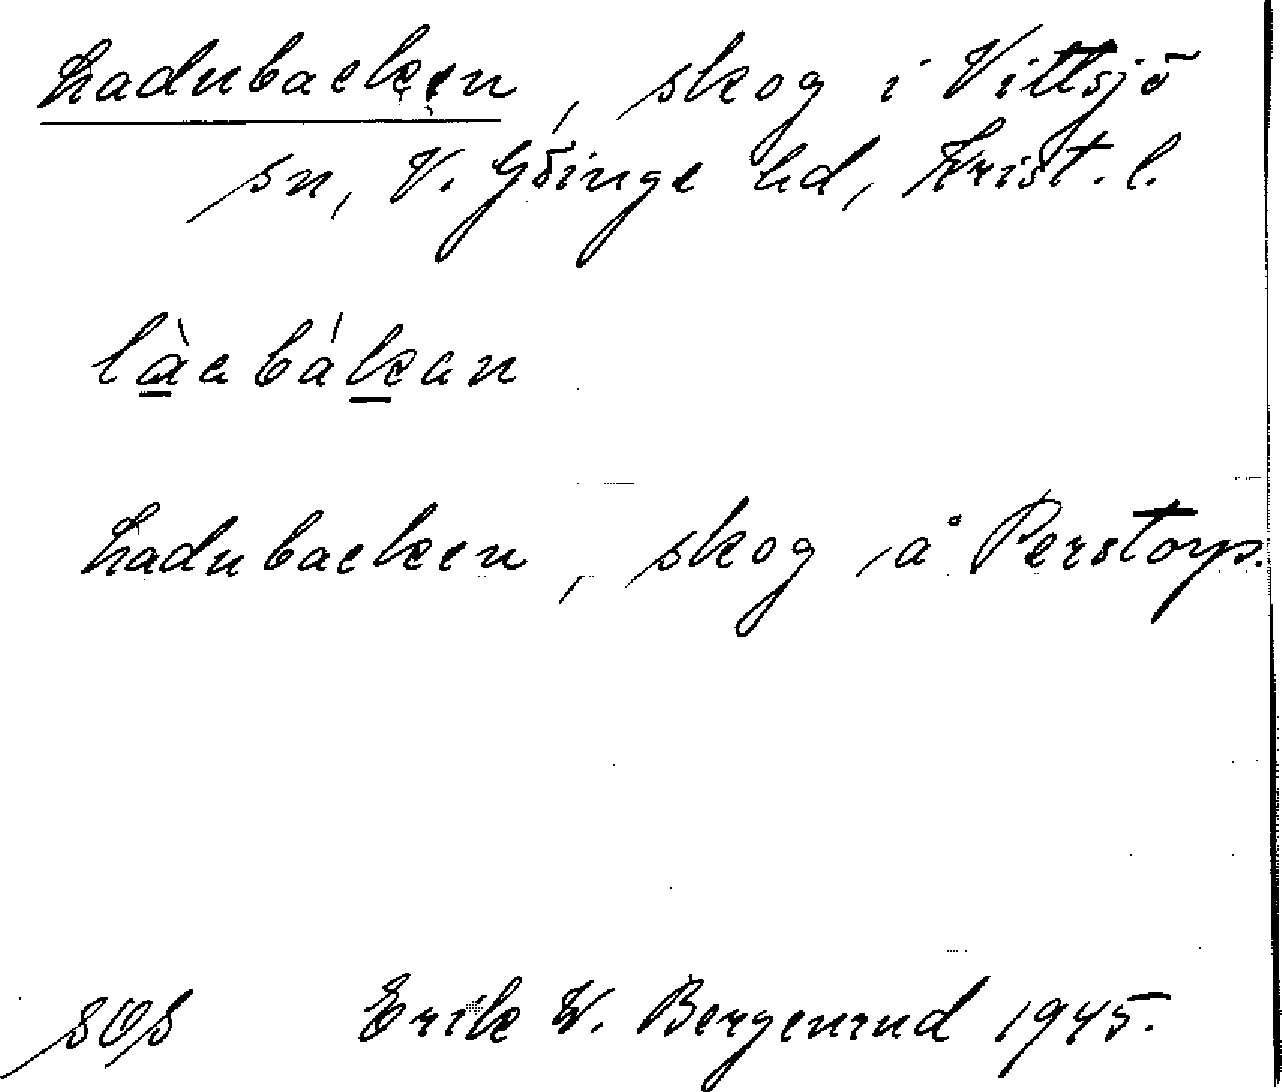 Ladubacken, skog i Vittsjö
sn, V. Göinge hd, Krist. l.
làabákan
Ladubacken, skog å Perstorp.
Erik W. Bergenrud 1945.